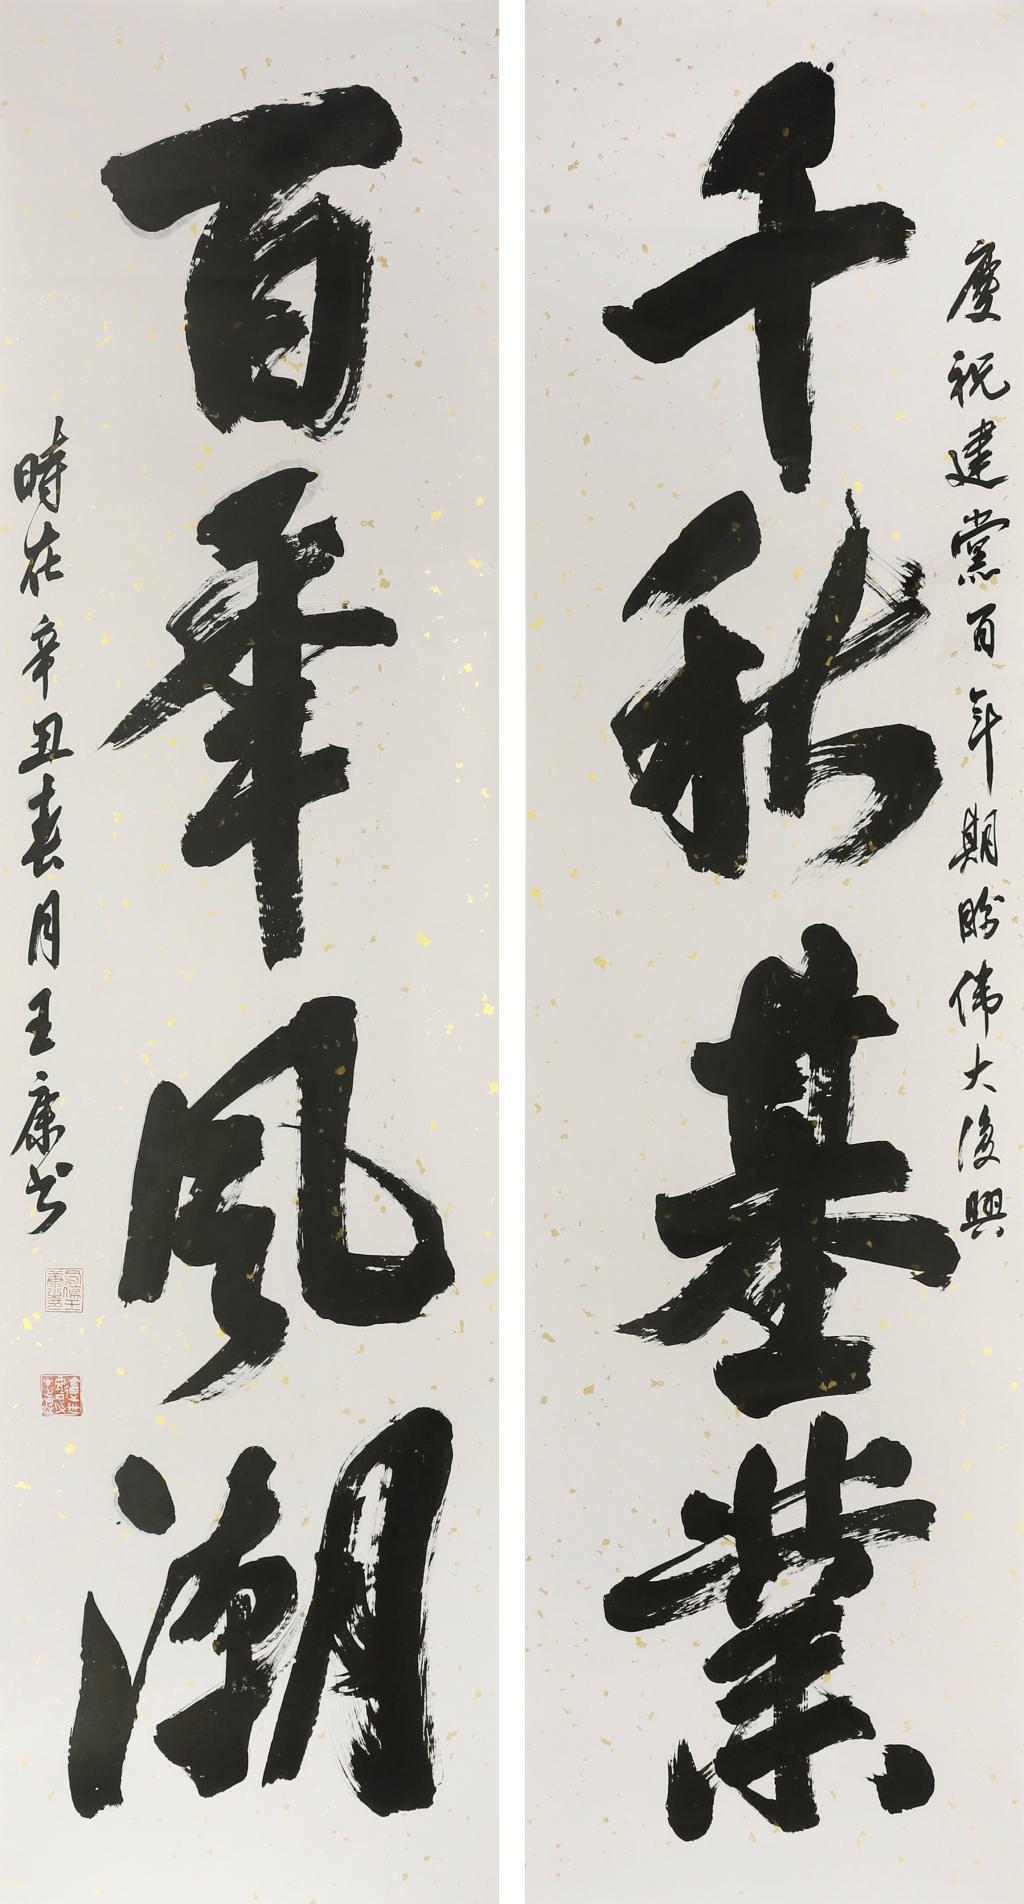 慶祝建黨百年期盼伟大復興
千秋基業
百年風潮
時在辛丑春月王康书